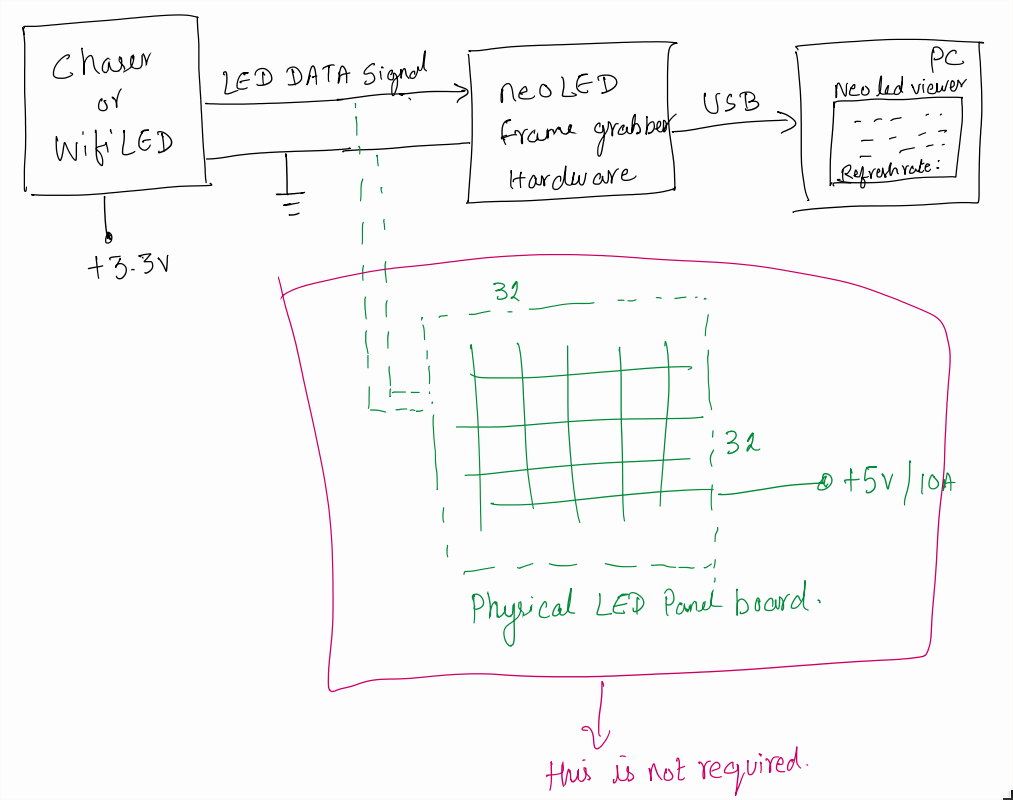 Chaser
or
Wifi LED
+3.3V
LED DATA Signal
neoLED
frame grabber
Hardware
USB
PC
Neo led viewer
Refresh rate:
32
32
+5V/10A
Physical LED Panel board.
this is not required.